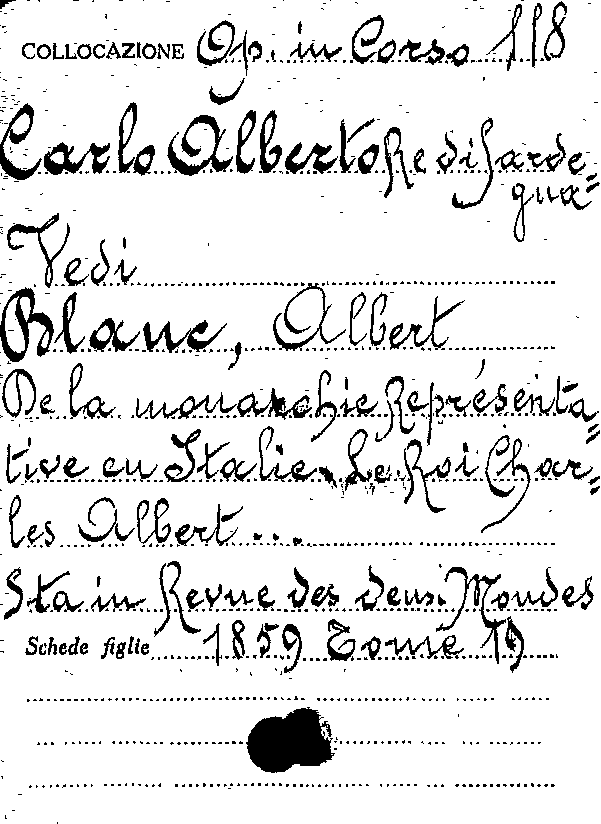 COLLOCAZIONE Op. in Corso 118
Carlo Alberto Re di Sarde=
gna
Vedi
Blanc, Albert
De la monarchie Représenta=
tive en Italie. Le Roi Char=
les Albert ...
Sta in Revue des deux Mondes
Schede figlie 1859 Tome 19